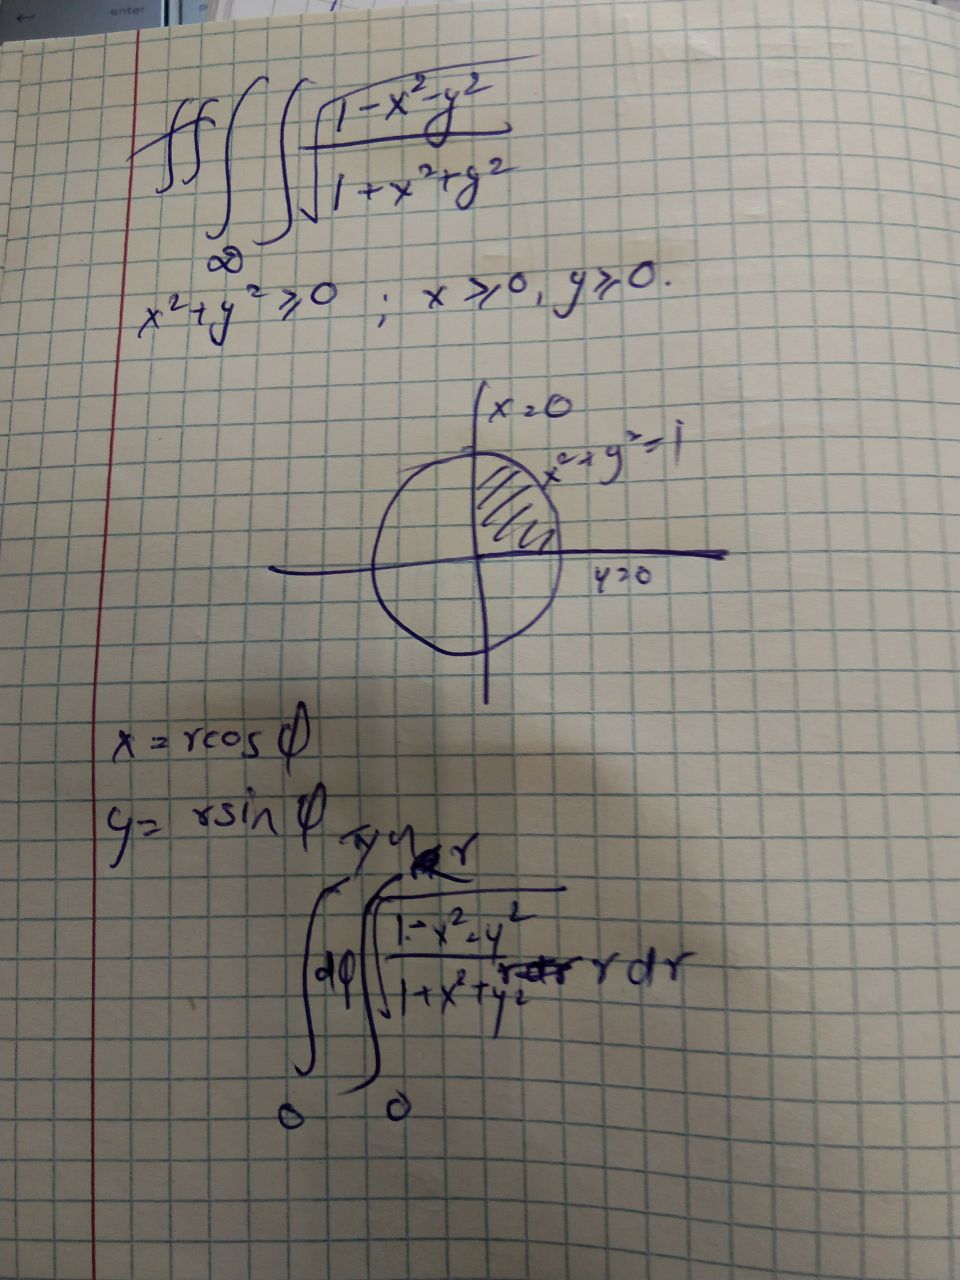 enter
∬ ∫∫ √((1-x²-y²)/(1+x²+y²))
D
x²+y²≥0 ; x≥0, y≥0.
x=0
x²+y²=1
y=0
x=rcosφ
y= rsinφ
∫₀ dφ ∫₀ʳ √((1-x²-y²)/(1+x²+y²)) r dr